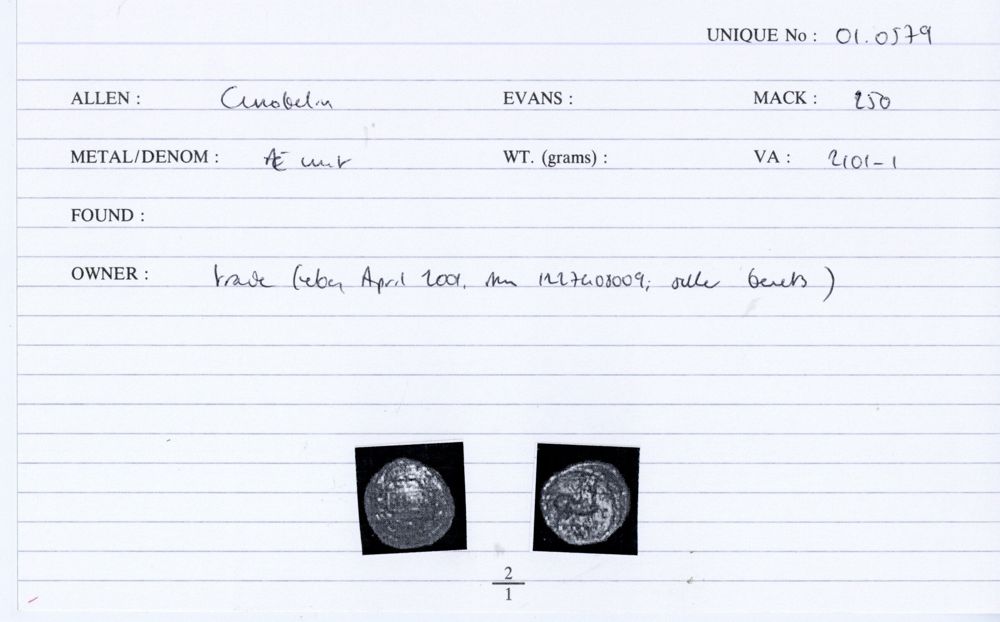 UNIQUE No : 01.0579
ALLEN : Cunobelin EVANS : MACK : 250
METAL/DENOM : Æ unit WT. (grams) : VA : 2101-1
FOUND :
OWNER : trade (ebay, April 2001, item 1127408009; seller )
2
1